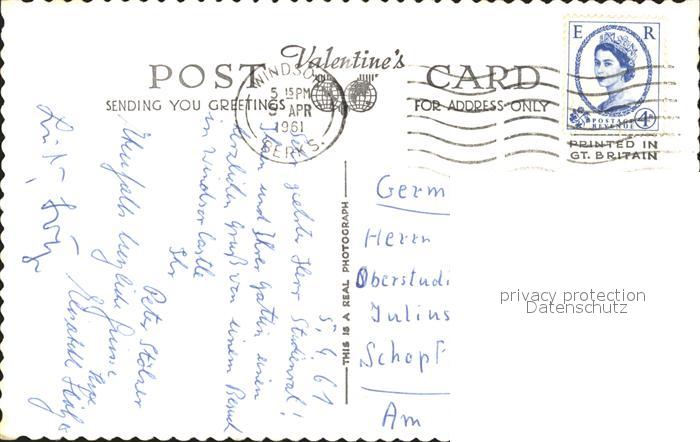 Valentine's
POST CARD
SENDING YOU GREETINGS
FOR ADDRESS ONLY
WINDSOR
5 15 PM
5 APR
1961
BERKS.
E R
POSTAGE
REVENUE
4D
PRINTED IN
GT. BRITAIN
THIS IS A REAL PHOTOGRAPH
5. 4. 61
Sehr geehrter Herr Studienrat!
Ihnen und Ihrer Gattin einen
herzlichen Gruß von einem Besuch
in Windsor Castle
Ihr
Peter Stölzer
Ebenfalls herzliche Grüsse
Germ
Herrn
Oberstudi
Julius
Schopf
Am
privacy protection
Datenschutz